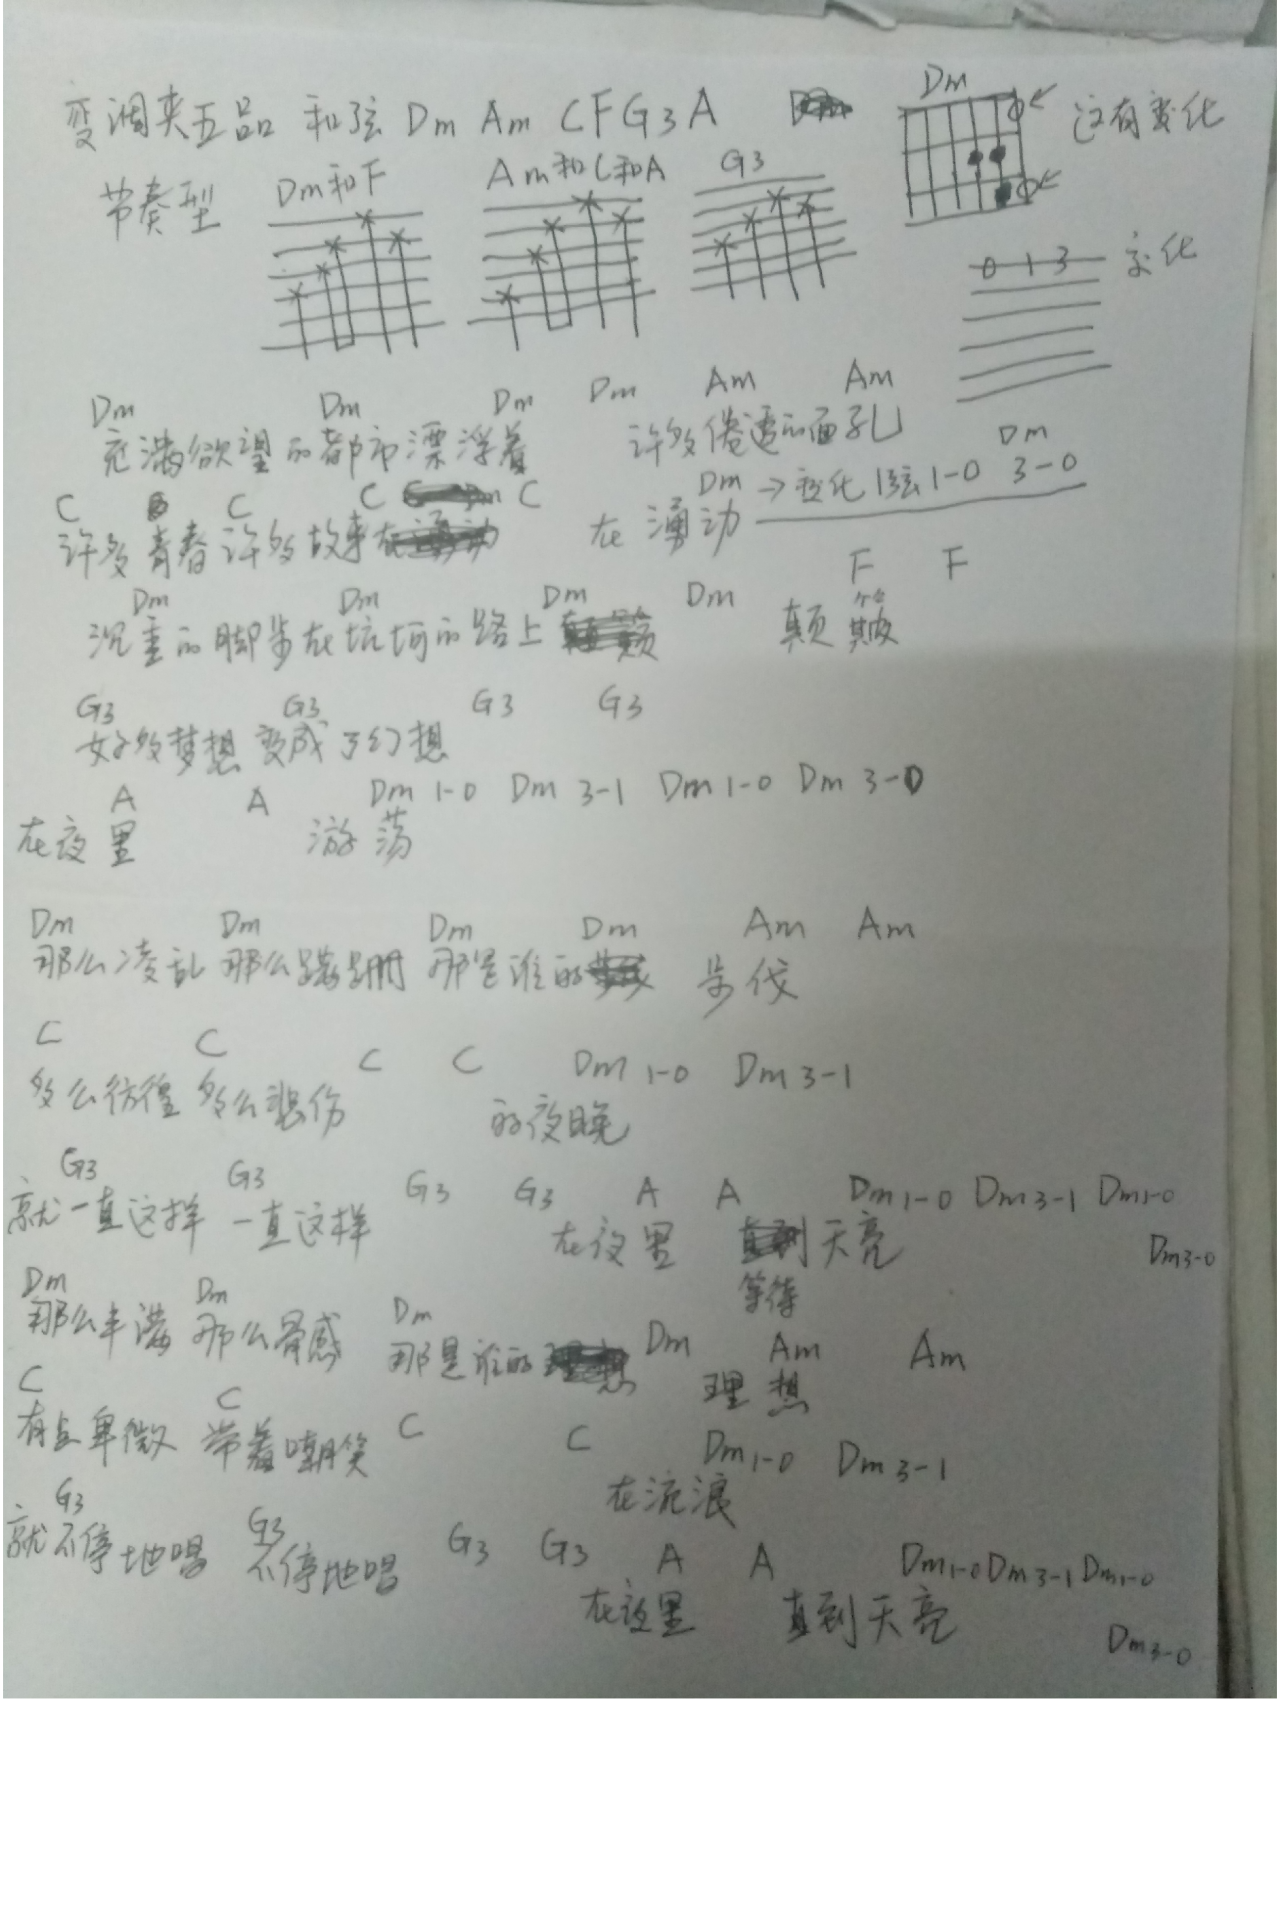 变调夹五品 和弦 Dm Am C F G3 A
Dm
这有变化
节奏型 Dm和F Am和C和A G3
0 1 3 变化
Dm Dm Dm Dm Am Am
充满欲望的都市漂浮着 许多倦透的面孔
C C C C Dm → 变化1弦1-0 Dm 3-0
许多青春许多故事在 在涌动
Dm Dm Dm Dm F F
沉重的脚步在坑坷的路上 颠簸
G3 G3 G3 G3
好多梦想变成了幻想
A A Dm 1-0 Dm 3-1 Dm 1-0 Dm 3-0
在夜里 游荡
Dm Dm Dm Dm Am Am
那么凌乱 那么蹒跚 那是谁的 步伐
C C C C Dm 1-0 Dm 3-1
多么彷徨 多么悲伤 的夜晚
G3 G3 G3 G3 A A Dm1-0 Dm3-1 Dm1-0
就一直这样 一直这样 在夜里 天亮
Dm3-0
等待
Dm Dm Dm Dm Am Am
那么丰满 那么骨感 那是谁的 理想
C C C C Dm1-0 Dm3-1
有点卑微 带着嘲笑 在流浪
G3 G3 G3 G3 A A Dm1-0 Dm3-1 Dm1-0
就不停地唱 不停地唱 在夜里 直到天亮
Dm3-0